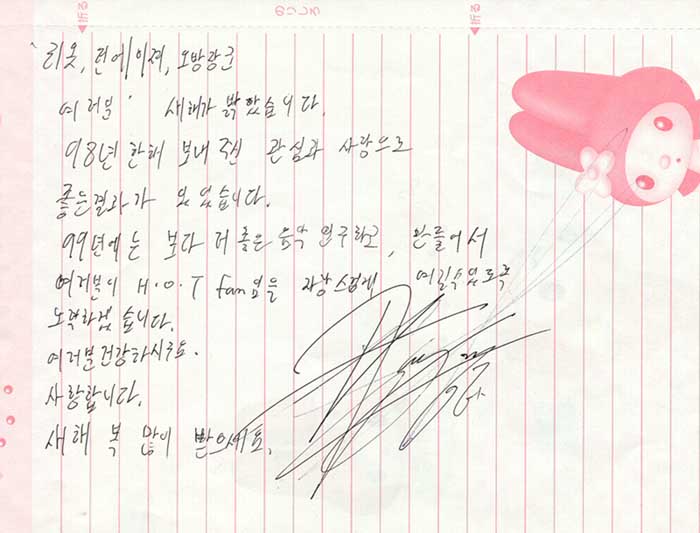 ◀折る
のりしろ
◀折る
리옷, 턴에이져, 오방광군
여러분 새해가 밝았습니다.
98년 한해 보내주신 관심과 사랑으로
좋은결과가 있었습니다.
99년에는 보다 더 좋은 음악 연구하고, 만들어서
여러분이 H.O.T fan임을 자랑스럽게 여길수있도록
노력하겠습니다.
여러분 건강하시구요.
사랑합니다.
새해 복 많이 받으세요.